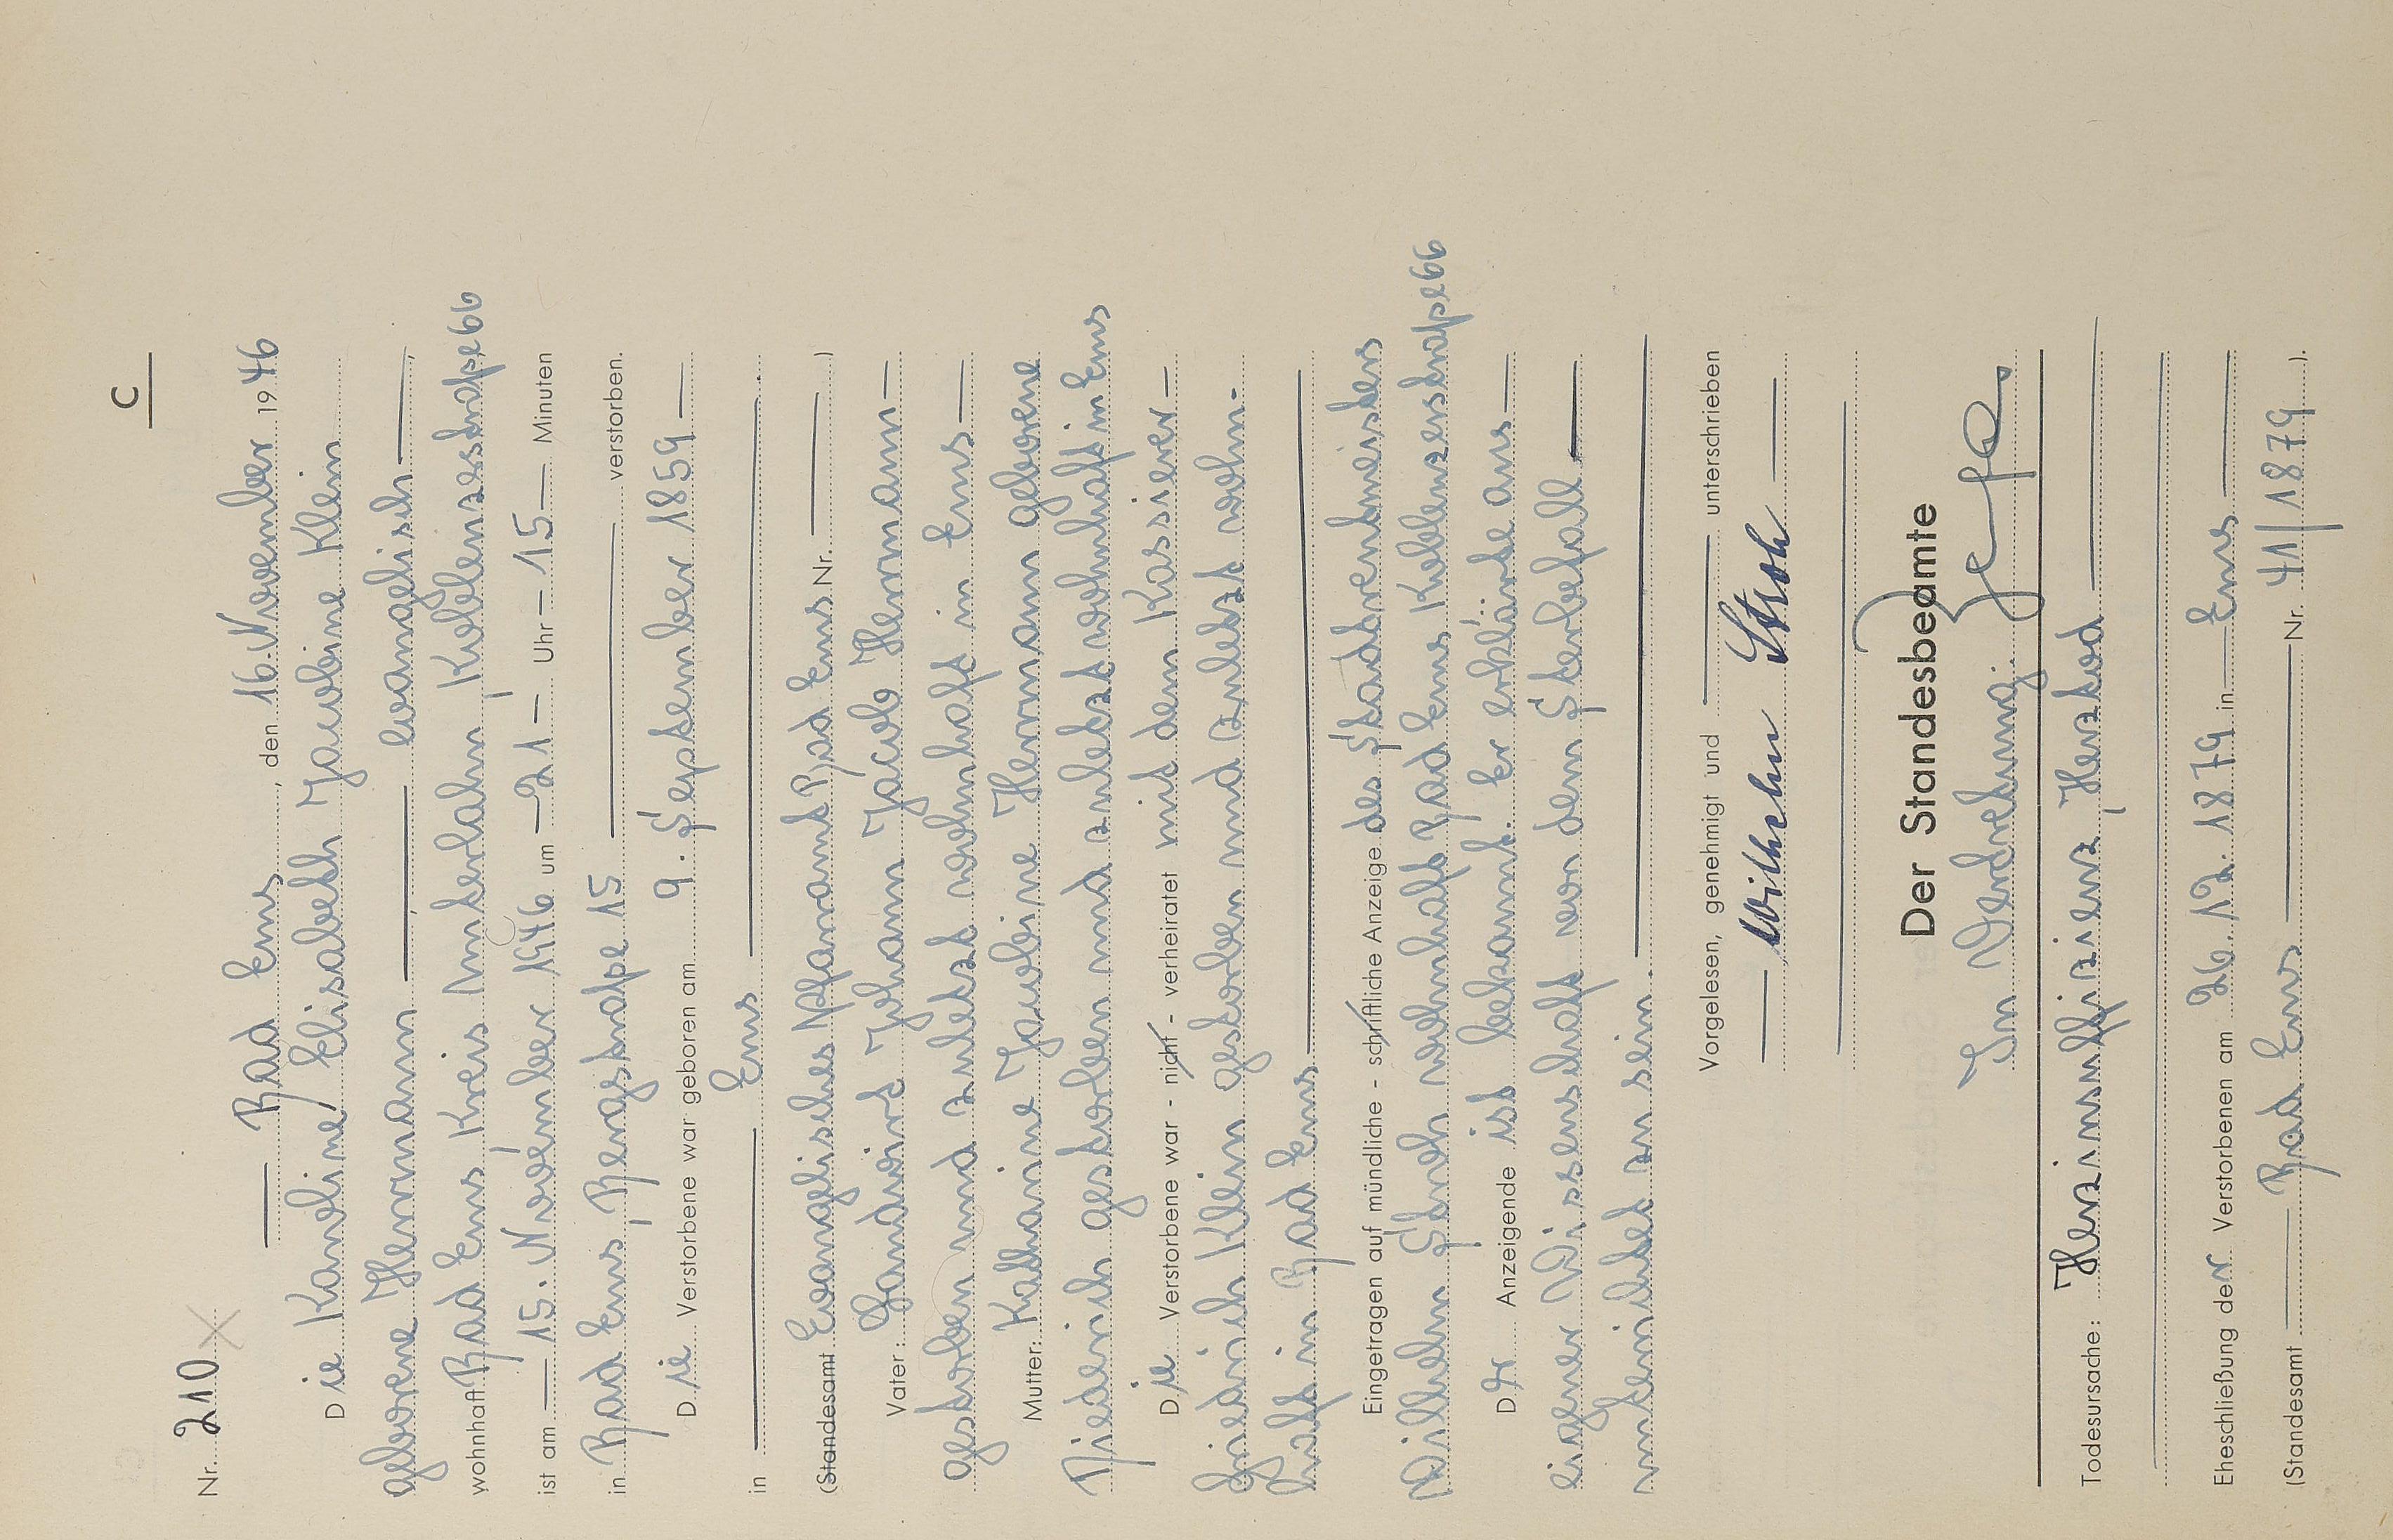 C
Nr. 210
Bad Ems, den 16. November 1946
Die Karoline Elisabeth Jacobine Klein
geborene Hermann evangelisch,
wohnhaft Bad Ems Kreis Unterlahn, Koblenzerstraße 66
ist am 15. November 1946 um 21 Uhr 15 Minuten
in Bad Ems, Bergstraße 15 verstorben.
Die Verstorbene war geboren am 9. September 1859
in Ems.
(Standesamt Evangelisches Pfarramt Bad Ems Nr. )
Vater: Landwirt Johann Jacob Hermann
gestorben und zuletzt wohnhaft in Ems
Mutter: Katharine Jacobine Hermann geborene
gestorben und zuletzt wohnhaft in Ems
Die Verstorbene war - nicht - verheiratet mit dem Kassierer
Friedrich Klein gestorben und zuletzt wohn-
haft in Bad Ems
Eingetragen auf mündliche - schriftliche Anzeige des Stadtrentmeisters
Wilhelm Stroh wohnhaft Bad Ems Koblenzerstraße 66
Der Anzeigende ist bekannt. Er erklärte aus
eigener Wissenschaft von dem Sterbefall
unterrichtet zu sein.
Vorgelesen, genehmigt und unterschrieben
Wilhelm Stroh
Der Standesbeamte
In Vertretung:
Todesursache: Herzinsuffizienz, Herztod
Eheschließung der Verstorbenen am 26. 12. 1879 in Ems
(Standesamt Bad Ems Nr. 41/1879).